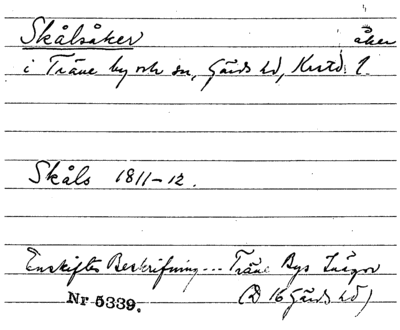 Skålsåker åker
i Träne by och sn, Gärds hd, Krstd. l.
Skåls 1811-12.
Enskiftes Beskrifning... Träne Bys Inägor
Nr 5339. (D 16 Gärds hd)